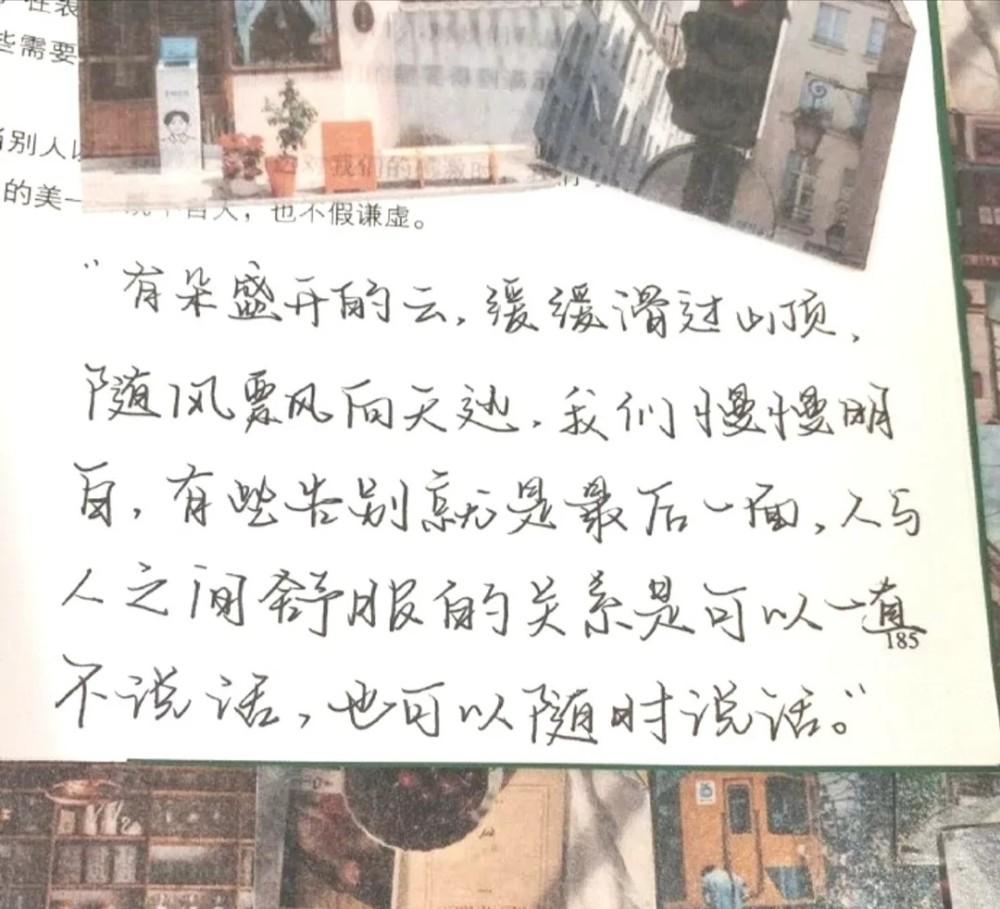 在表
些需要
别人以
我们的
的美一
也不假谦虚。
“有朵盛开的云,缓缓滑过山顶,
随风飘向天边,我们慢慢明
白,有些告别就是最后一面,人与
人之间舒服的关系是可以一直
185
不说话,也可以随时说话。”